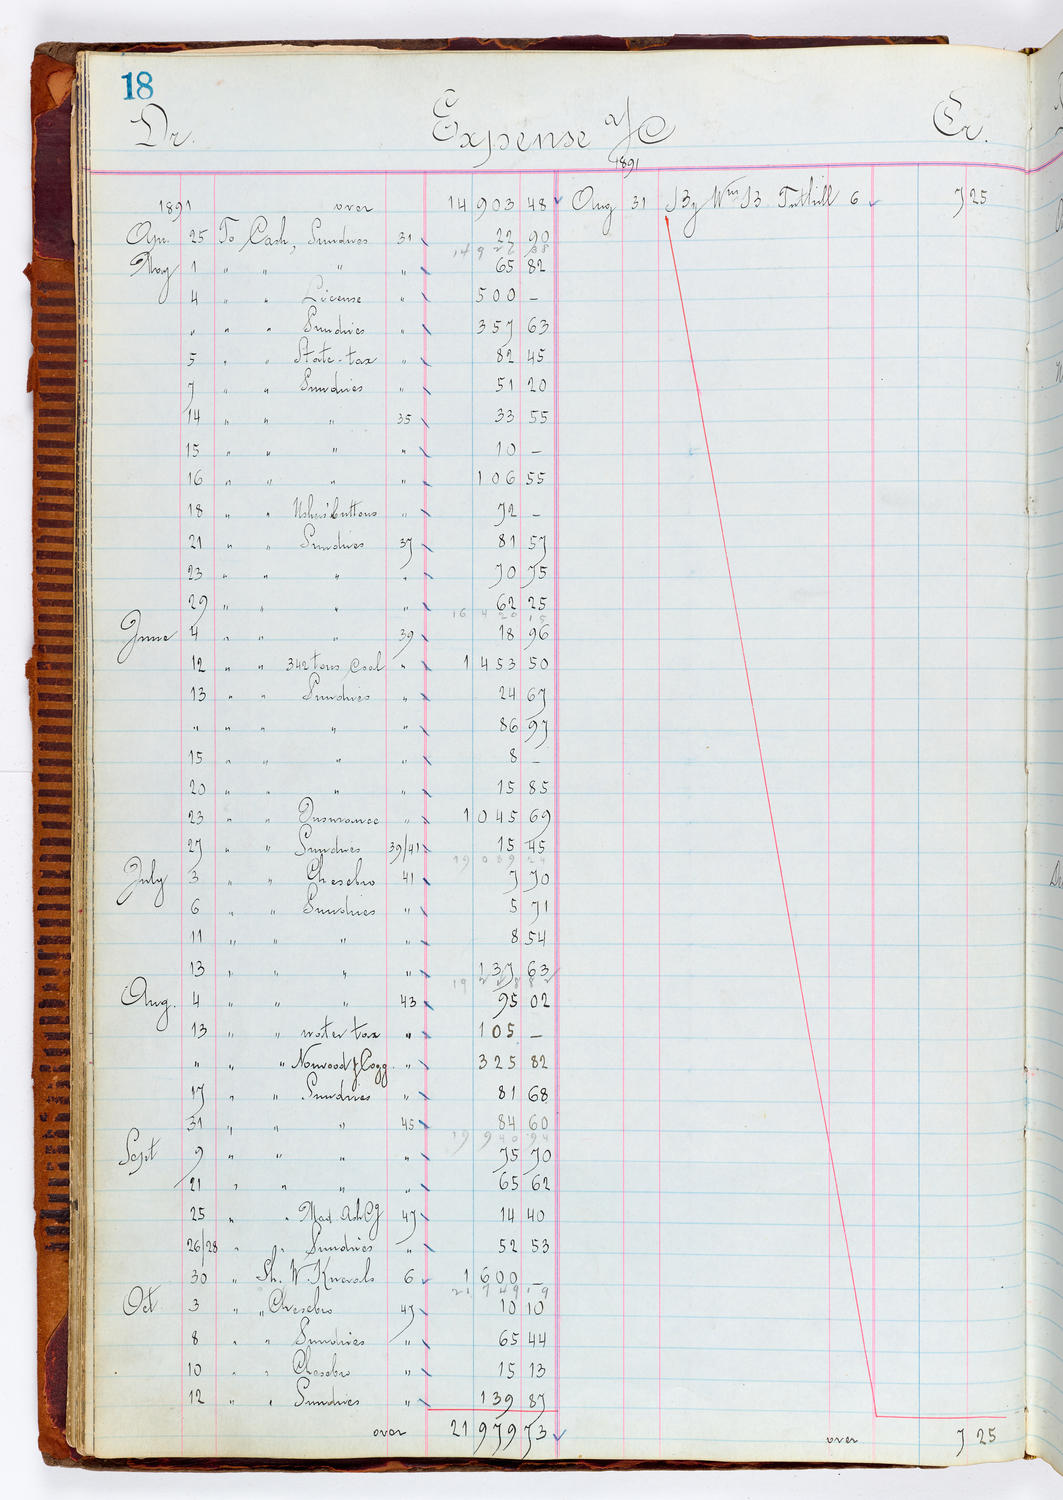 18
Dr. Expense a/c Cr.
1891
1891 over 14903 48 Aug 31 By Wm B Tuthill 6 7 25
Apr. 25 To Cash, Sundries 31 22 90
14 9
May 1 " " " " 65 82
4 " " License " 500 –
" " " Sundries " 357 63
5 " " State-tax " 82 45
7 " " Sundries " 51 20
14 " " " 35 33 55
15 " " " " 10 –
16 " " " " 106 55
18 " " Ushers' buttons " 72 –
21 " " Sundries 37 81 57
23 " " " " 70 75
29 " " " " 62 25
16 4 20 15
June 4 " " " 39 18 96
12 " " 342 tons Coal " 1453 50
13 " " Sundries " 24 67
" " " " " 86 97
15 " " " " 8 –
20 " " " " 15 85
23 " " Insurance " 1045 69
27 " " Sundries 39/41 15 45
19 0 89 24
July 3 " " Chesebro 41 7 70
6 " " Sundries " 5 71
11 " " " " 8 54
13 " " " " 137 63
19
Aug. 4 " " " 43 95 02
13 " " water tax " 105 –
" " " Norwood & Cogg. " 325 82
17 " " Sundries " 81 68
31 " " " 45 84 60
19 9 40 94
Sept 9 " " " " 75 70
21 " " " " 65 62
25 " " Mad. 47 14 40
26/28 " " Sundries " 52 53
30 " Sh. W. Knevals 6 1600 –
21 7 49 19
Oct 3 " " Chesebro 47 10 10
8 " " Sundries " 65 44
10 " " Chesebro " 15 13
12 " " Sundries " 139 87
over 21979 73 over 7 25